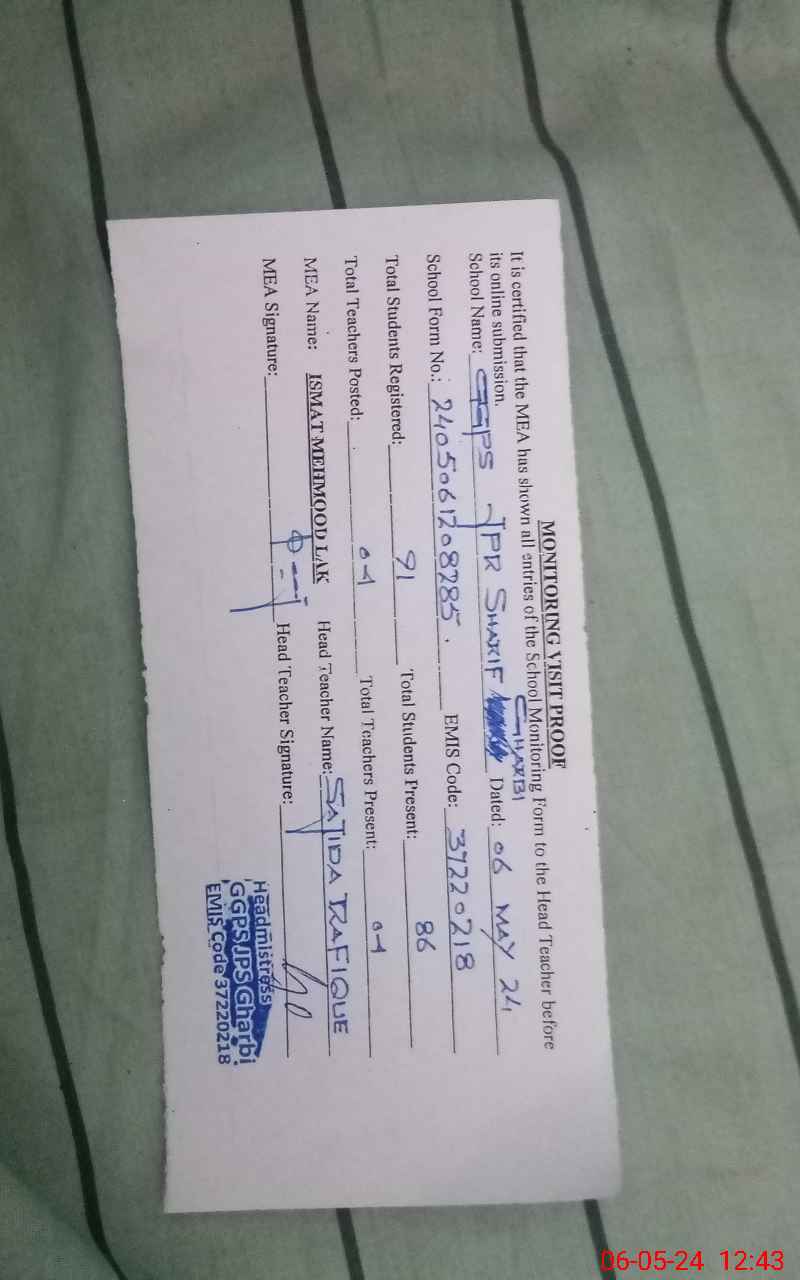 MONITORING VISIT PROOF
It is certified that the MEA has shown all entries of the School Monitoring Form to the Head Teacher before
its online submission.
GHARBI
School Name: GGPS JPR SHARIF Dated: 06 MAY 24
School Form No.: 2405061208285. EMIS Code: 37220218
Total Students Registered: 91 Total Students Present: 86
Total Teachers Posted: 04 Total Teachers Present: 04
MEA Name: ISMAT MEHMOOD LAK Head Teacher Name: SAJIDA RAFIQUE
MEA Signature: Head Teacher Signature:
Headmistress
GGPS JPS Gharbi
EMIS Code 37220218
06-05-24 12:43